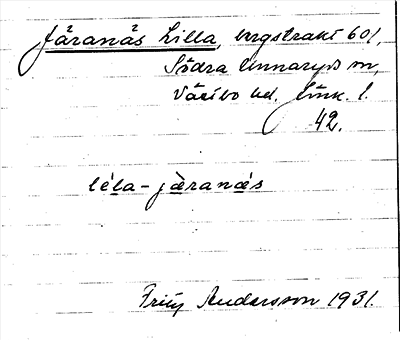 Järanäs Lilla, bergstrakt 601,
Södra Unnaryds sn,
Västbo hd. Jönk. l.
42.
léla-jàranás
Fritz Andersson 1931.